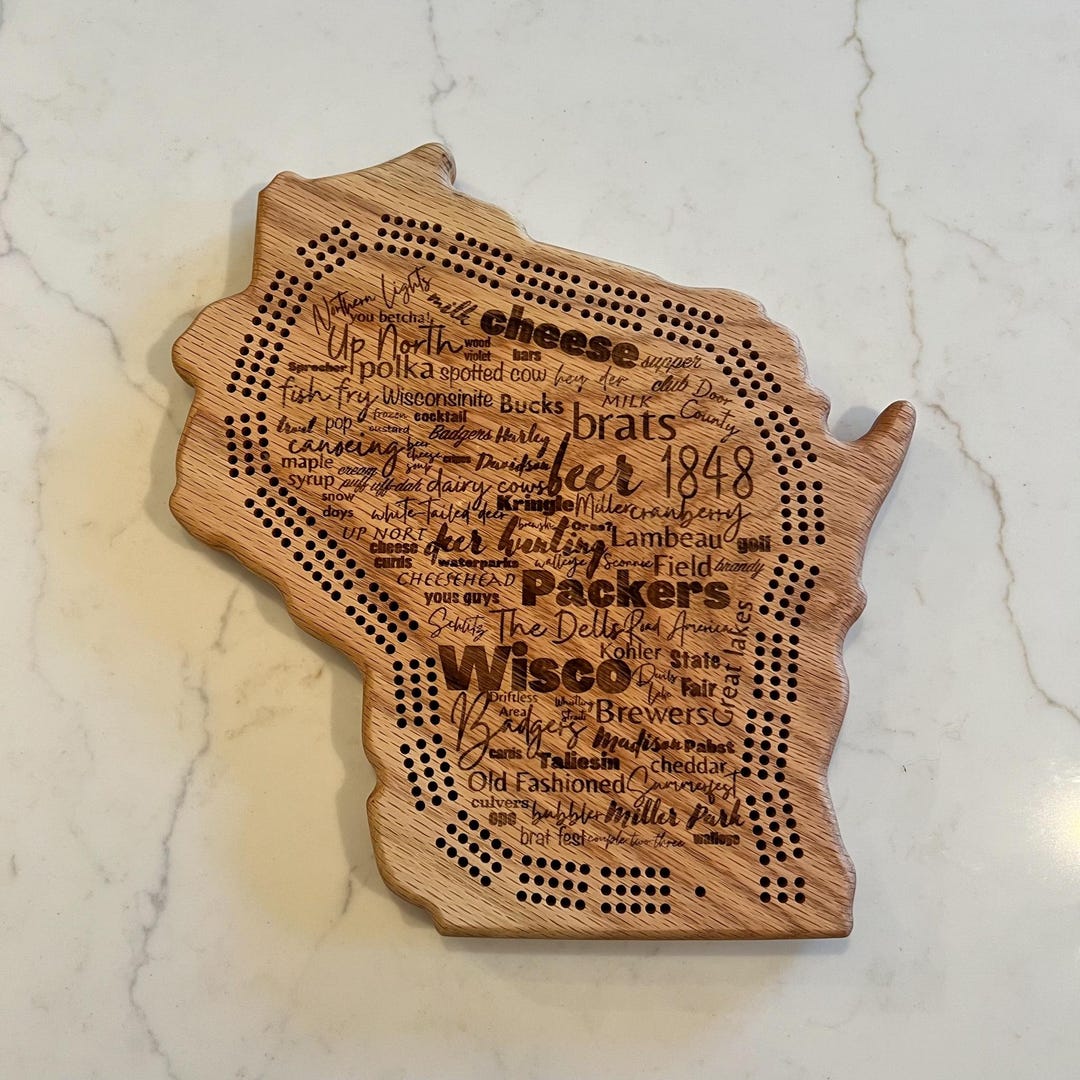 Northern Lights milk cheese
you betcha!
Up North wood violet bars supper club
Sprecher polka spotted cow hey der Door County
fish fry Wisconsinite Bucks MILK brats
travel pop frozen custard cocktail
canoeing beer cheese soup Badgers Harley Davidson beer 1848
maple syrup cream puff uff-dah dairy cows
snow days white-tailed deer Kringle Miller cranberry
UP NORT brewski Or no?
cheese curds deer hunting Lambeau Field golf
waterparks walleye Sconnie brandy
CHEESEHEAD Packers
yous guys
Schlitz The Dells Road America Great lakes
Wisco Kohler State Fair
Devils Lake
Driftless Area Brewers
Badgers Madison Pabst
cards Taliesin cheddar
Old Fashioned Summerfest
culvers bubbler Miller Park
ope
brat fest couple two three